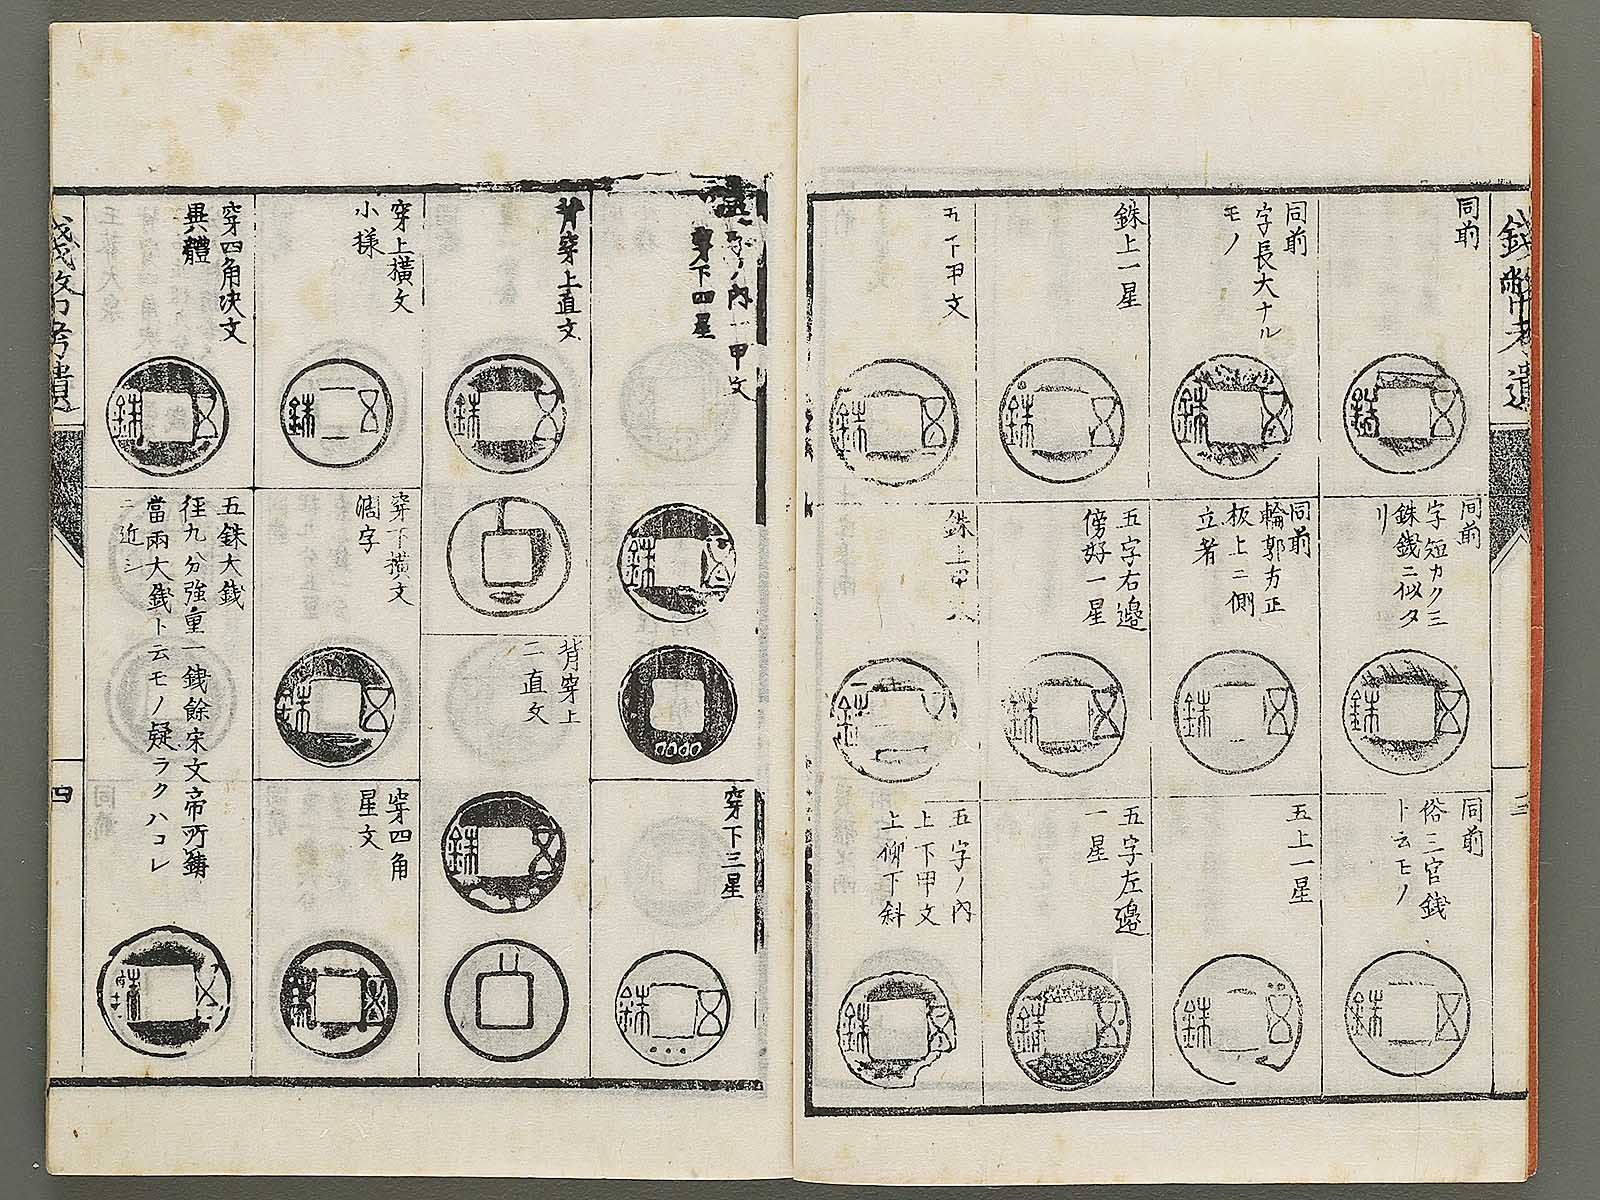 同前
同前
字短カク三
銖銭ニ似タ
リ
同前
俗ニ官銭
ト云モノ
同前
字長大ナル
モノ
同前
輪郭方正
板上ニ側
立者
五上一星
銖上一星
五字右邉
傍好一星
五字左邉
一星
五下甲文
銖上甲文
五字ノ内
上下甲文
上仰下斜
三
五字ノ内一甲文
穿下四星
穿下三星
背穿上直文
背穿上
二直文
穿上横文
小様
穿下横文
濶字
穿四角
星文
穿四角决文
異體
五銖大銭
径九分強重一銭餘宋文帝所鋳
當兩大銭ト云モノ疑ラクハコレ
ニ近シ
四